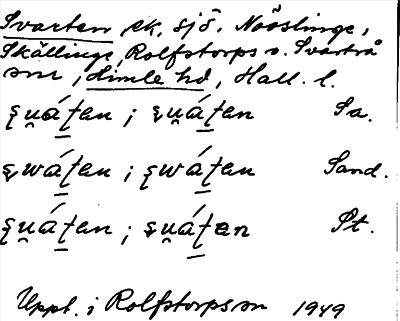 Svarten, ek, sjö. Nösslinge,
Skällinge, Rolfstorps o. Svartrå
snr, Himle hd, Hall. l.
ʂu̯áʈen ; ʂu̯áʈen Sa.
ʂwáʈen ; ʂwáʈen Sand.
ʂu̯áʈen ; ʂu̯áʈen Pt.
Uppt. i Rolfstorps sn 1949